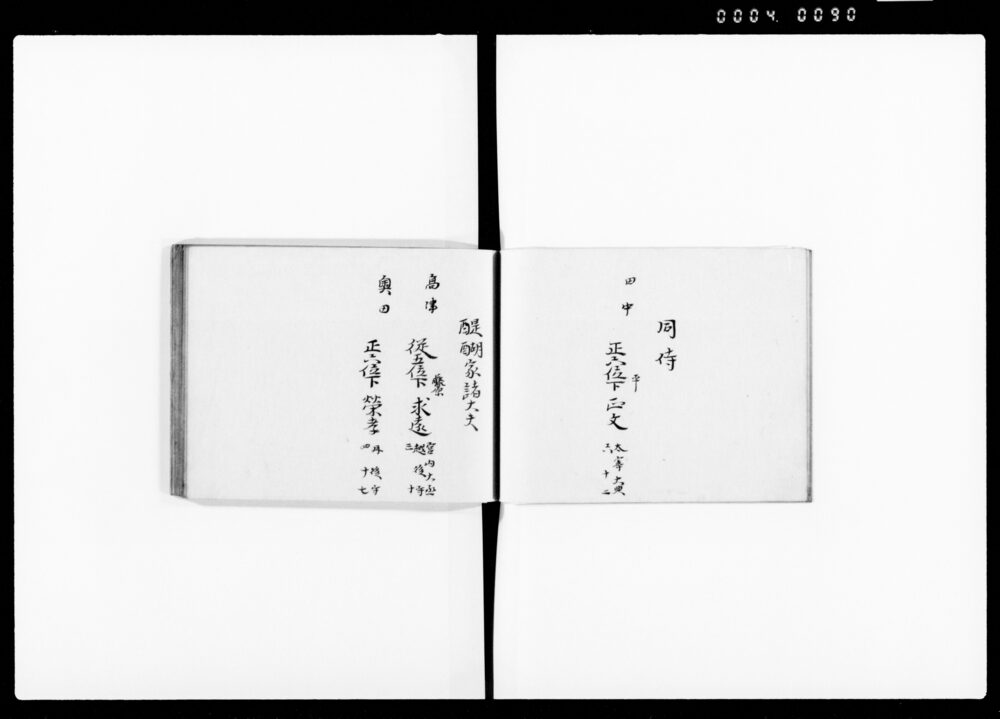 0004. 0090
同侍
田中 正六位下 平 正文 太宰大典 六十二
醍醐家諸大夫
高津 従五位下 藤原 求遠 宮内大丞 越後守 三十
奥田 正六位下 榮孝 丹後守 四十七